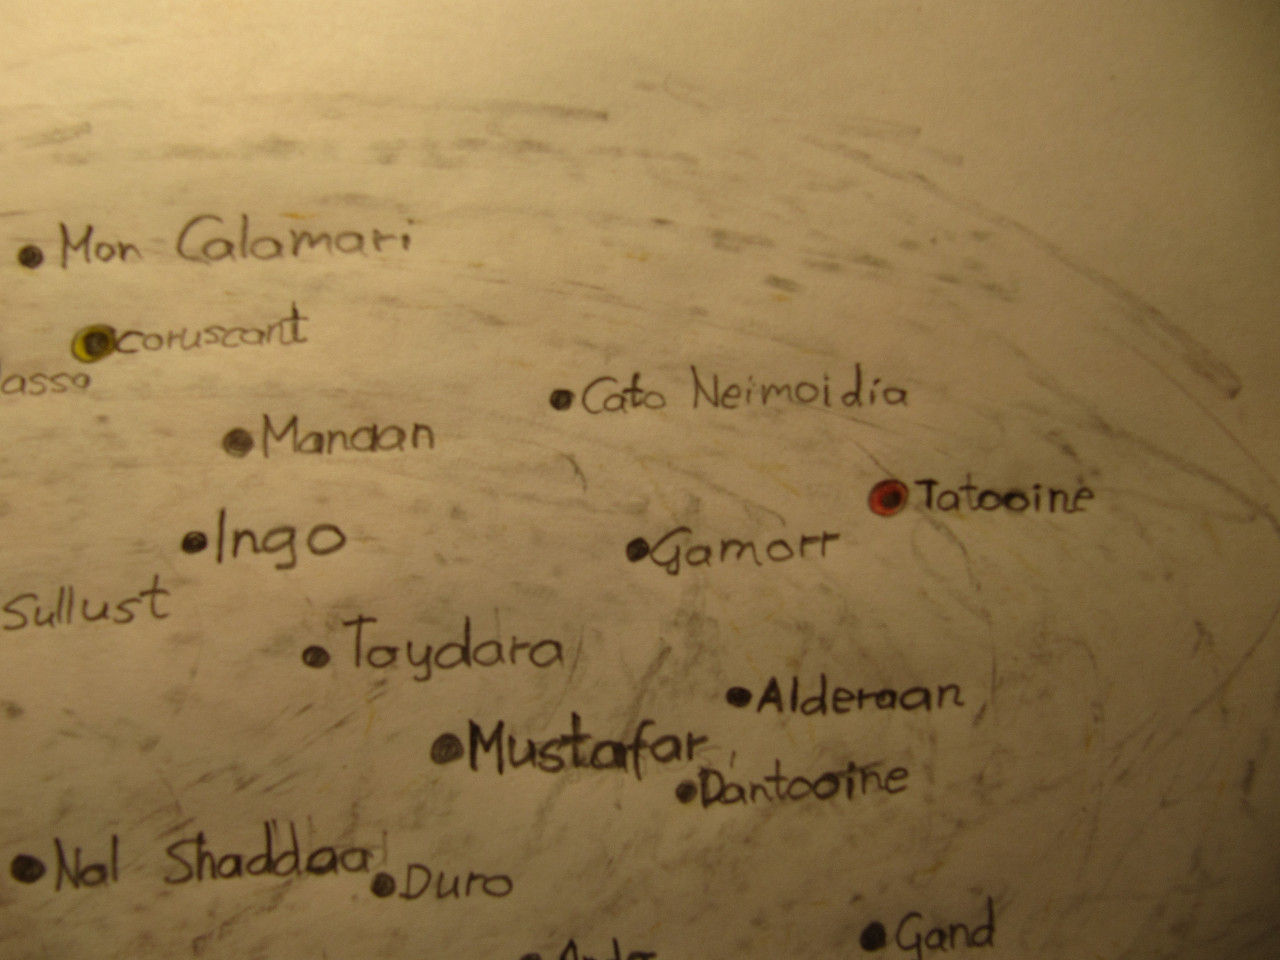 Mon Calamari
coruscant
Cato Neimoidia
Manaan
Tatooine
Ingo
Gamorr
Sullust
Toydara
Alderaan
Mustafar
Dantooine
Nal Shaddaa
Duro
Gand